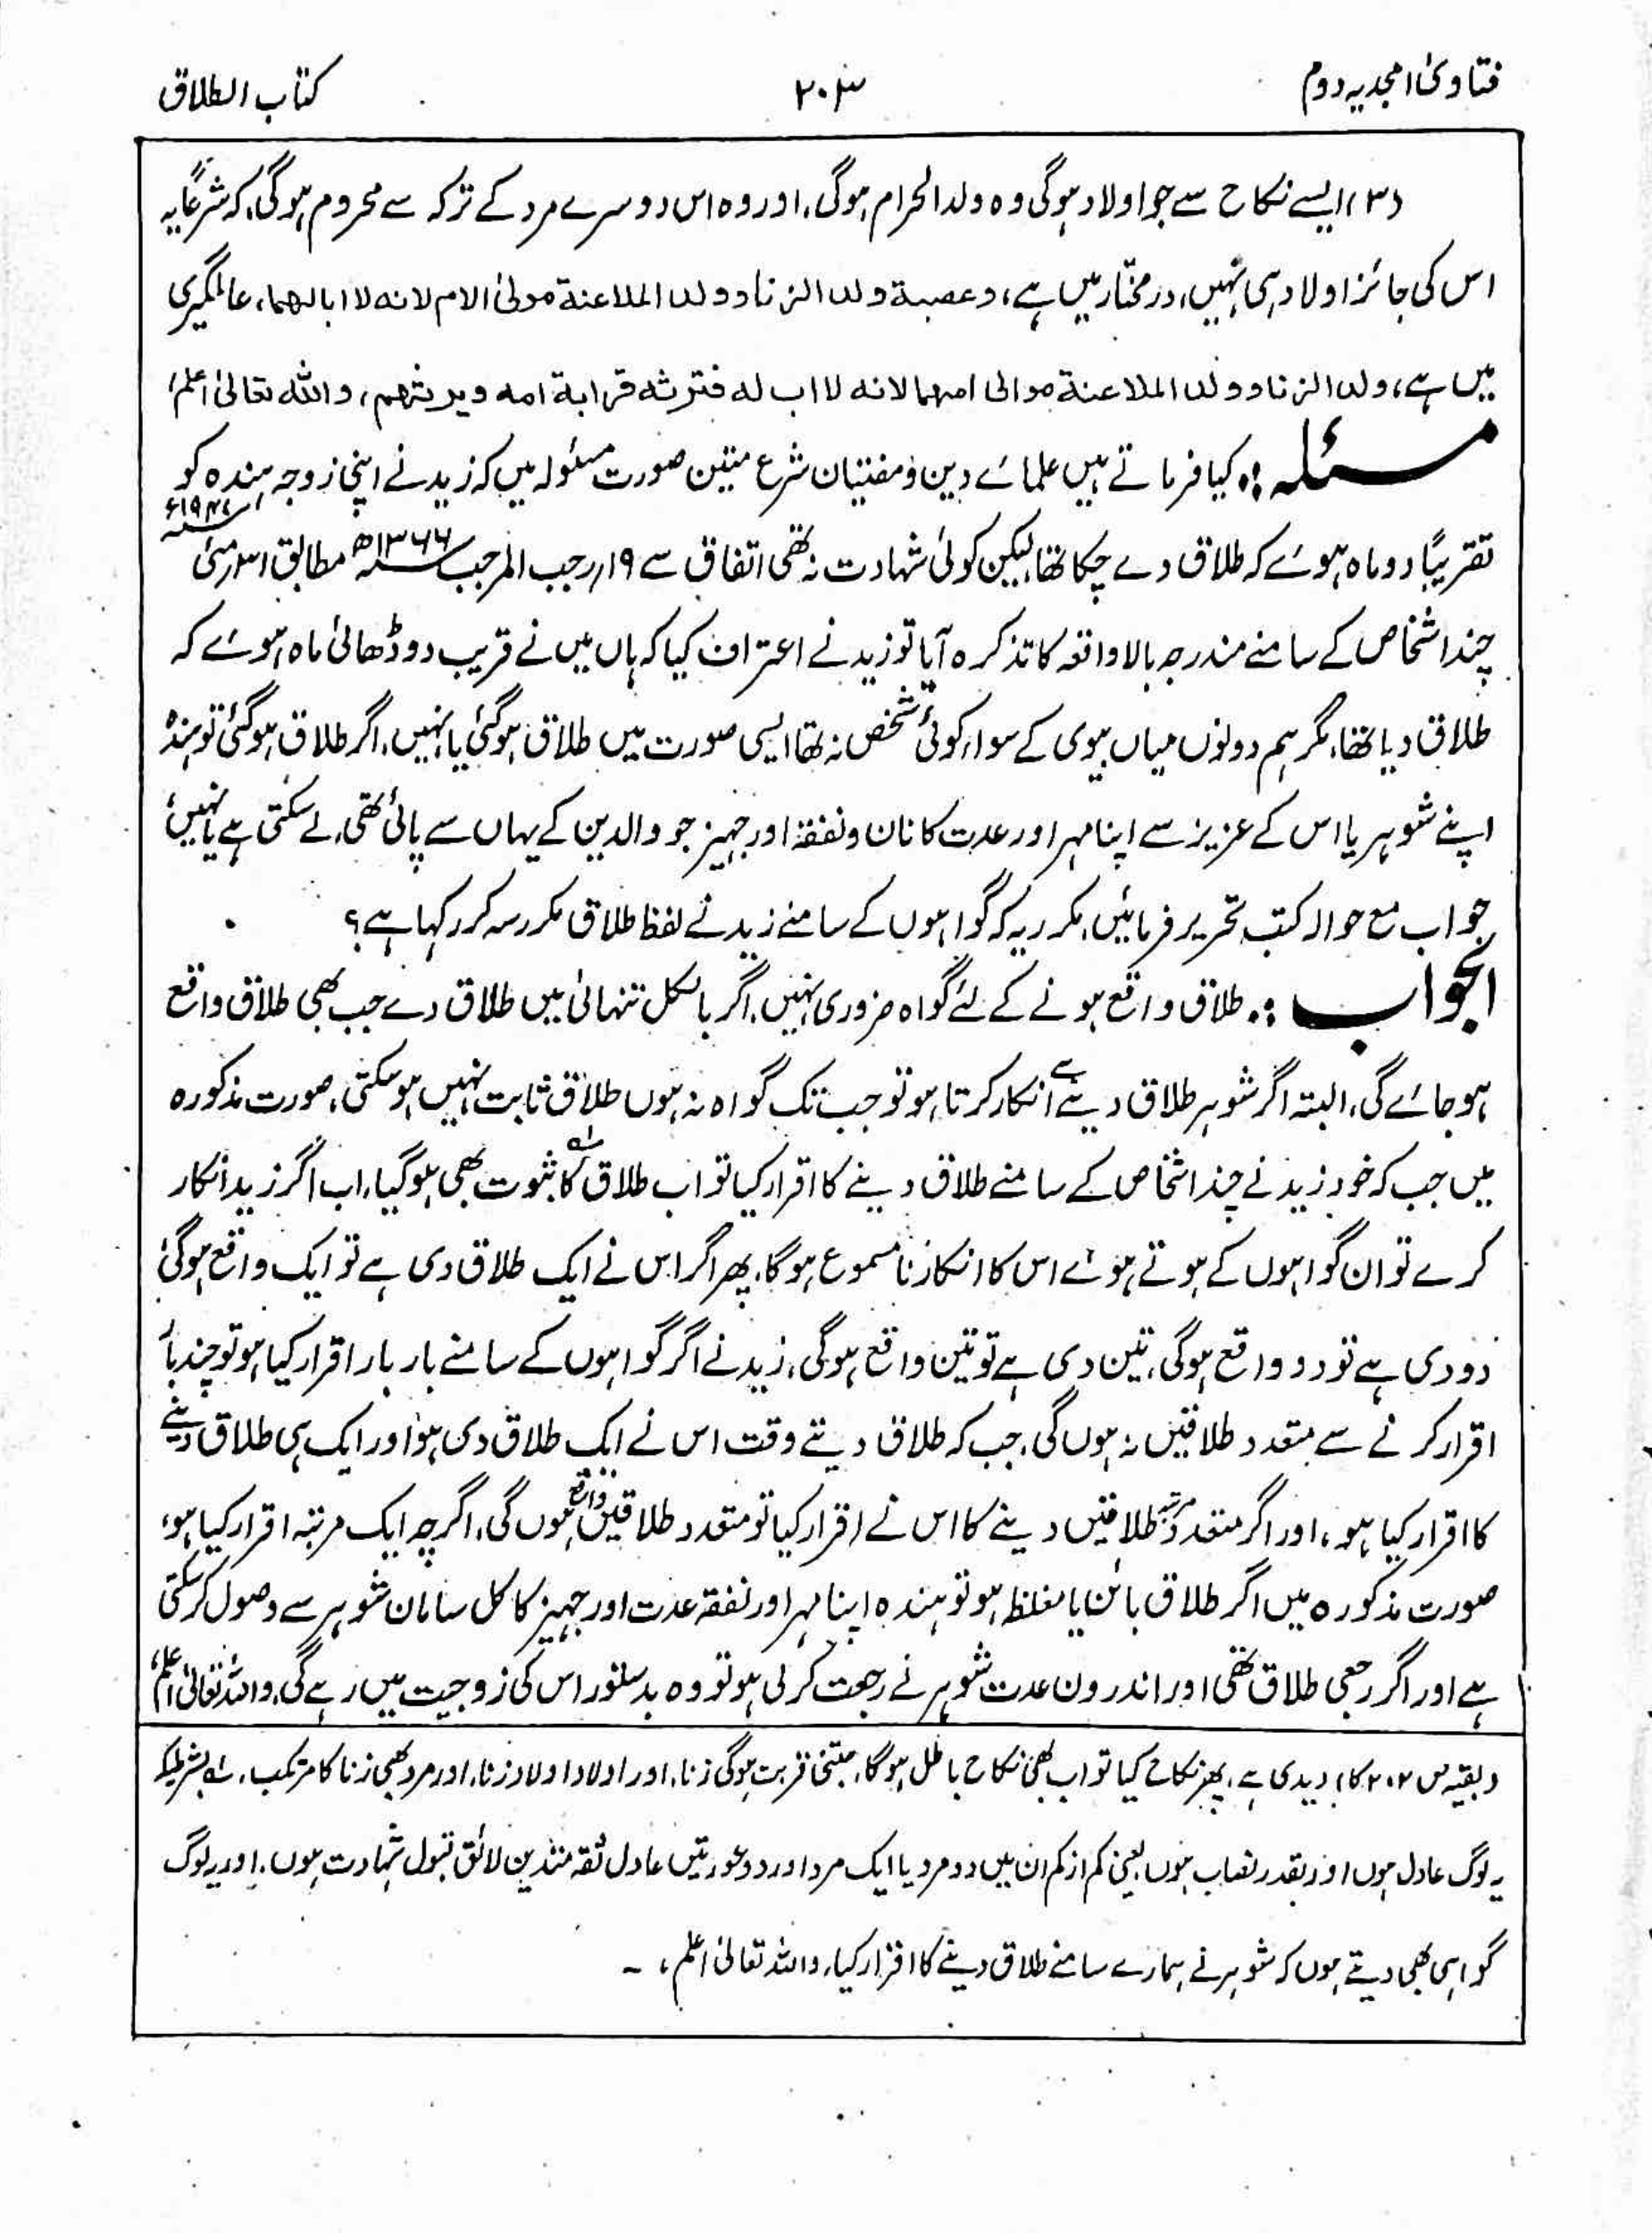 فتاویٰ امجدیہ دوم
۲۰۳
کتاب الطلاق
(۳) ایسے نکاح سے جو اولاد ہوگی وہ ولد الحرام ہوگی، اور وہ اس دوسرے مرد کے ترکہ سے محروم ہوگی، کہ شرعاً یہ
اس کی جائز اولاد ہی نہیں، در مختار میں ہے، وعصبة ولد الزنا وولد الملاعنة مولی الام لانه لا ابا لهما، عالمگیری
میں ہے، ولد الزنا وولد الملاعنة موالی امهما لانه لا اب له فترثه قرابة امه ویرثهم، والله تعالیٰ اعلم،
مسئلہ :۔ کیا فرماتے ہیں علمائے دین ومفتیان شرع متین صورت مسئولہ میں کہ زید نے اپنی زوجہ ہندہ کو
تقریباً دو ماہ ہوئے کہ طلاق دے چکا تھا، لیکن کوئی شہادت نہ تھی اتفاق سے ۱۹؍ رجب المرجب ۱۳۶۶ھ مطابق ۳۱؍ مئی
چند اشخاص کے سامنے مندرجہ بالا واقعہ کا تذکرہ آیا تو زید نے اعتراف کیا کہ ہاں میں نے قریب دو ڈھائی ماہ ہوئے کہ
طلاق دیا تھا، مگر ہم دونوں میاں بیوی کے سوا، کوئی شخص نہ تھا ایسی صورت میں طلاق ہوگئی یا نہیں، اگر طلاق ہوگئی تو ہندہ
اپنے شوہر یا اس کے عزیز سے اپنا مہر اور عدت کا نان و نفقہ اور جہیز جو والدین کے یہاں سے پائی تھی، لے سکتی ہے یا نہیں
جواب مع حوالہ کتب تحریر فرمائیں، مکرر یہ کہ گواہوں کے سامنے زید نے لفظ طلاق مکرر سہ کرر کہا ہے؟
الجواب :۔ طلاق واقع ہونے کے لئے گواہ ضروری نہیں، اگر بالکل تنہائی میں طلاق دے جب بھی طلاق واقع
ہو جائے گی، البتہ اگر شوہر طلاق دینے سے انکار کرتا ہو تو جب تک گواہ نہ ہوں طلاق ثابت نہیں ہو سکتی، صورت مذکورہ
میں جب کہ خود زید نے چند اشخاص کے سامنے طلاق دینے کا اقرار کیا تو اب طلاق کا ثبوت بھی ہوگیا، اب اگر زید انکار
کرے تو ان گواہوں کے ہوتے ہوئے اس کا انکار نا مسموع ہوگا، پھر اگر اس نے ایک طلاق دی ہے تو ایک واقع ہوگی
دو دی ہے تو دو واقع ہوگی، تین دی ہے تو تین واقع ہوگی، زید نے اگر گواہوں کے سامنے بار بار اقرار کیا ہو تو چند بار
اقرار کرنے سے متعدد طلاقیں نہ ہوں گی، جب کہ طلاق دیتے وقت اس نے ایک طلاق دی ہو، اور ایک ہی طلاق دینے
کا اقرار کیا ہو، اور اگر متعدد مرتبہ طلاقیں دینے کا اس نے اقرار کیا تو متعدد طلاقیں واقع ہوں گی، اگرچہ ایک مرتبہ اقرار کیا ہو،
صورت مذکورہ میں اگر طلاق بائن یا مغلظہ ہو تو ہندہ اپنا مہر اور نفقہ عدت اور جہیز کا کل سامان شوہر سے وصول کر سکتی
ہے اور اگر رجعی طلاق تھی اور اندرون عدت شوہر نے رجعت کر لی ہو تو وہ بدستور اس کی زوجیت میں رہے گی، واللہ تعالیٰ اعلم،
(بقیہ ص ۲۰۲ کا) دیدی ہے، پھر نکاح کیا تو اب بھی نکاح باطل ہوگا، جتنی قربت ہوگی زنا، اور اولاد اولاد زنا، اور مرد بھی زنا کا مرتکب، بشرطیکہ
یہ لوگ عادل ہوں اور بقدر نصاب ہوں یعنی کم از کم ان میں دو مرد یا ایک مرد اور دو عورتیں عادل ثقہ متدین لائق قبول شہادت ہوں، اور یہ لوگ
گواہی بھی دیتے ہوں کہ شوہر نے ہمارے سامنے طلاق دینے کا اقرار کیا، واللہ تعالیٰ اعلم، ۔